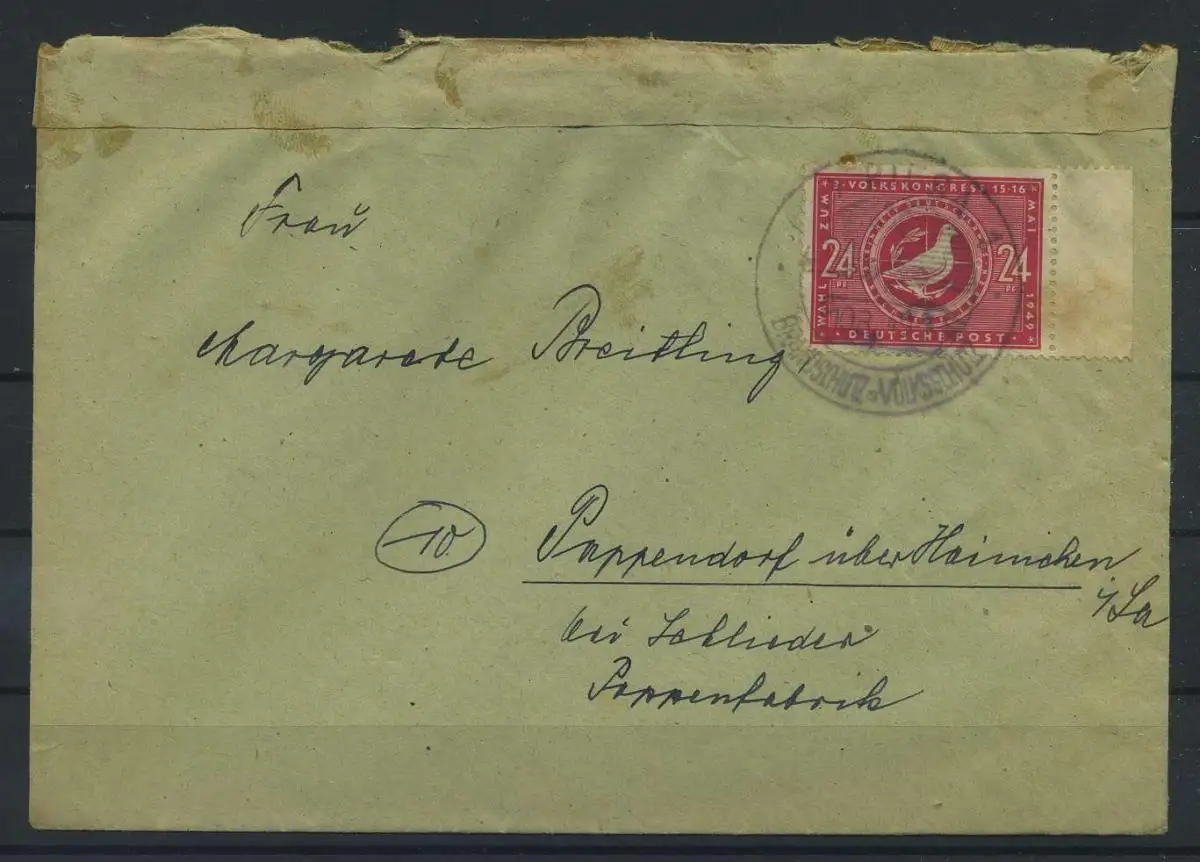 * 3. VOLKSKONGRESS 15-16 *
WAHL ZUM
MAI 1949
24 24
PF PF
* DEUTSCHE POST *
Frau
Margarete Breitling
10 Pappendorf über Hainichen
i/Sa
bei Schlieder
Pappenfabrik